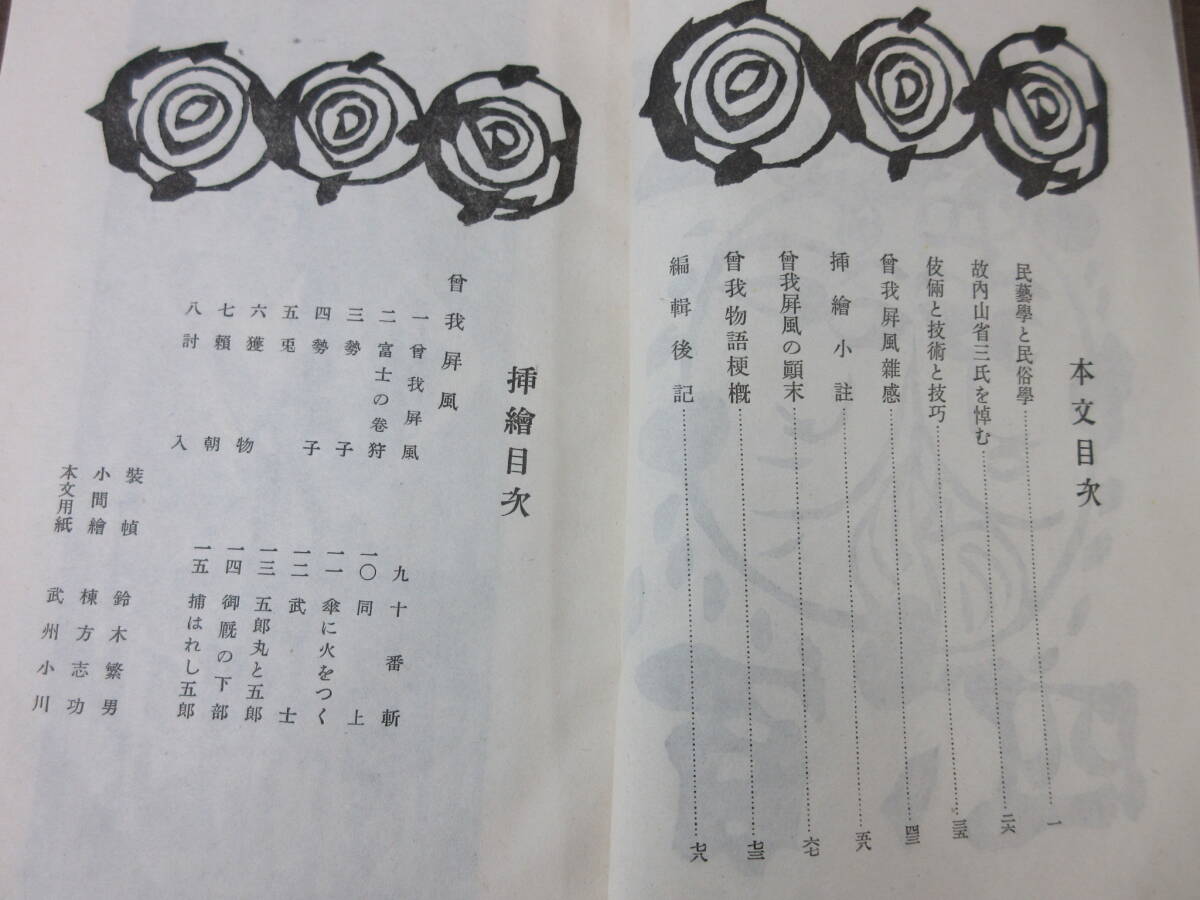 本文目次
民藝學と民俗學……一
故內山省三氏を悼む……二六
伎倆と技術と技巧……三五
曾我屛風雜感……四三
挿繪小註……五八
曾我屛風の顚末……六七
曾我物語梗槪……七三
編輯後記……七八
挿繪目次
曾我屛風
一 曾我屛風
二 富士の卷狩
三 勢子
四 勢子
五 兎
六 獲物
七 賴朝
八 討入
九 十番斬
一〇 同上
一一 傘に火をつく
一二 武士
一三 五郎丸と五郎
一四 御厩の下部
一五 捕はれし五郎
裝幀 鈴木繁男
小間繪 棟方志功
本文用紙 武州小川